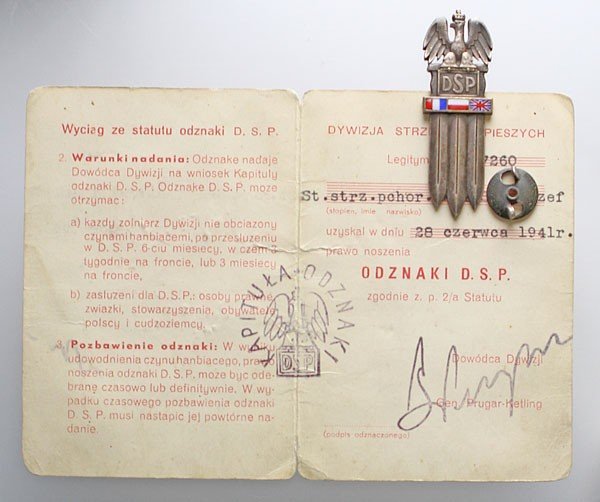 Wyciąg ze statutu odznaki D. S. P.
2. Warunki nadania: Odznakę nadaje
Dowódca Dywizji na wniosek Kapituły
odznaki D. S. P. Odznakę D. S. P. może
otrzymać:
a) każdy żołnierz Dywizji nie obciążony
czynami hańbiącemi, po przesłużeniu
w D. S. P. 6-ciu miesięcy, w czem 3
tygodnie na froncie, lub 3 miesięcy
na froncie,
b) zasłużeni dla D. S. P.: osoby prawne,
związki, stowarzyszenia, obywatele
polscy i cudzoziemcy.
3. Pozbawienie odznaki: W wypadku
udowodnienia czynu hańbiącego, prawo
noszenia odznaki D. S. P. może być ode-
brane czasowo lub definitywnie. W wy-
padku czasowego pozbawienia odznaki
D. S. P. musi nastąpić jej powtórne na-
danie.
KAPITUŁA ODZNAKI
DSP
DSP
DYWIZJA STRZ PIESZYCH
Legitym 7260
St.strz.pchor. zef
(stopień, imię nazwisko)
uzyskał w dniu 28 czerwca 1941r.
prawo noszenia
ODZNAKI D. S. P.
zgodnie z. p. 2/a Statutu
Dowódca Dywizji
Gen. Prugar-Ketling
(podpis odznaczonego)